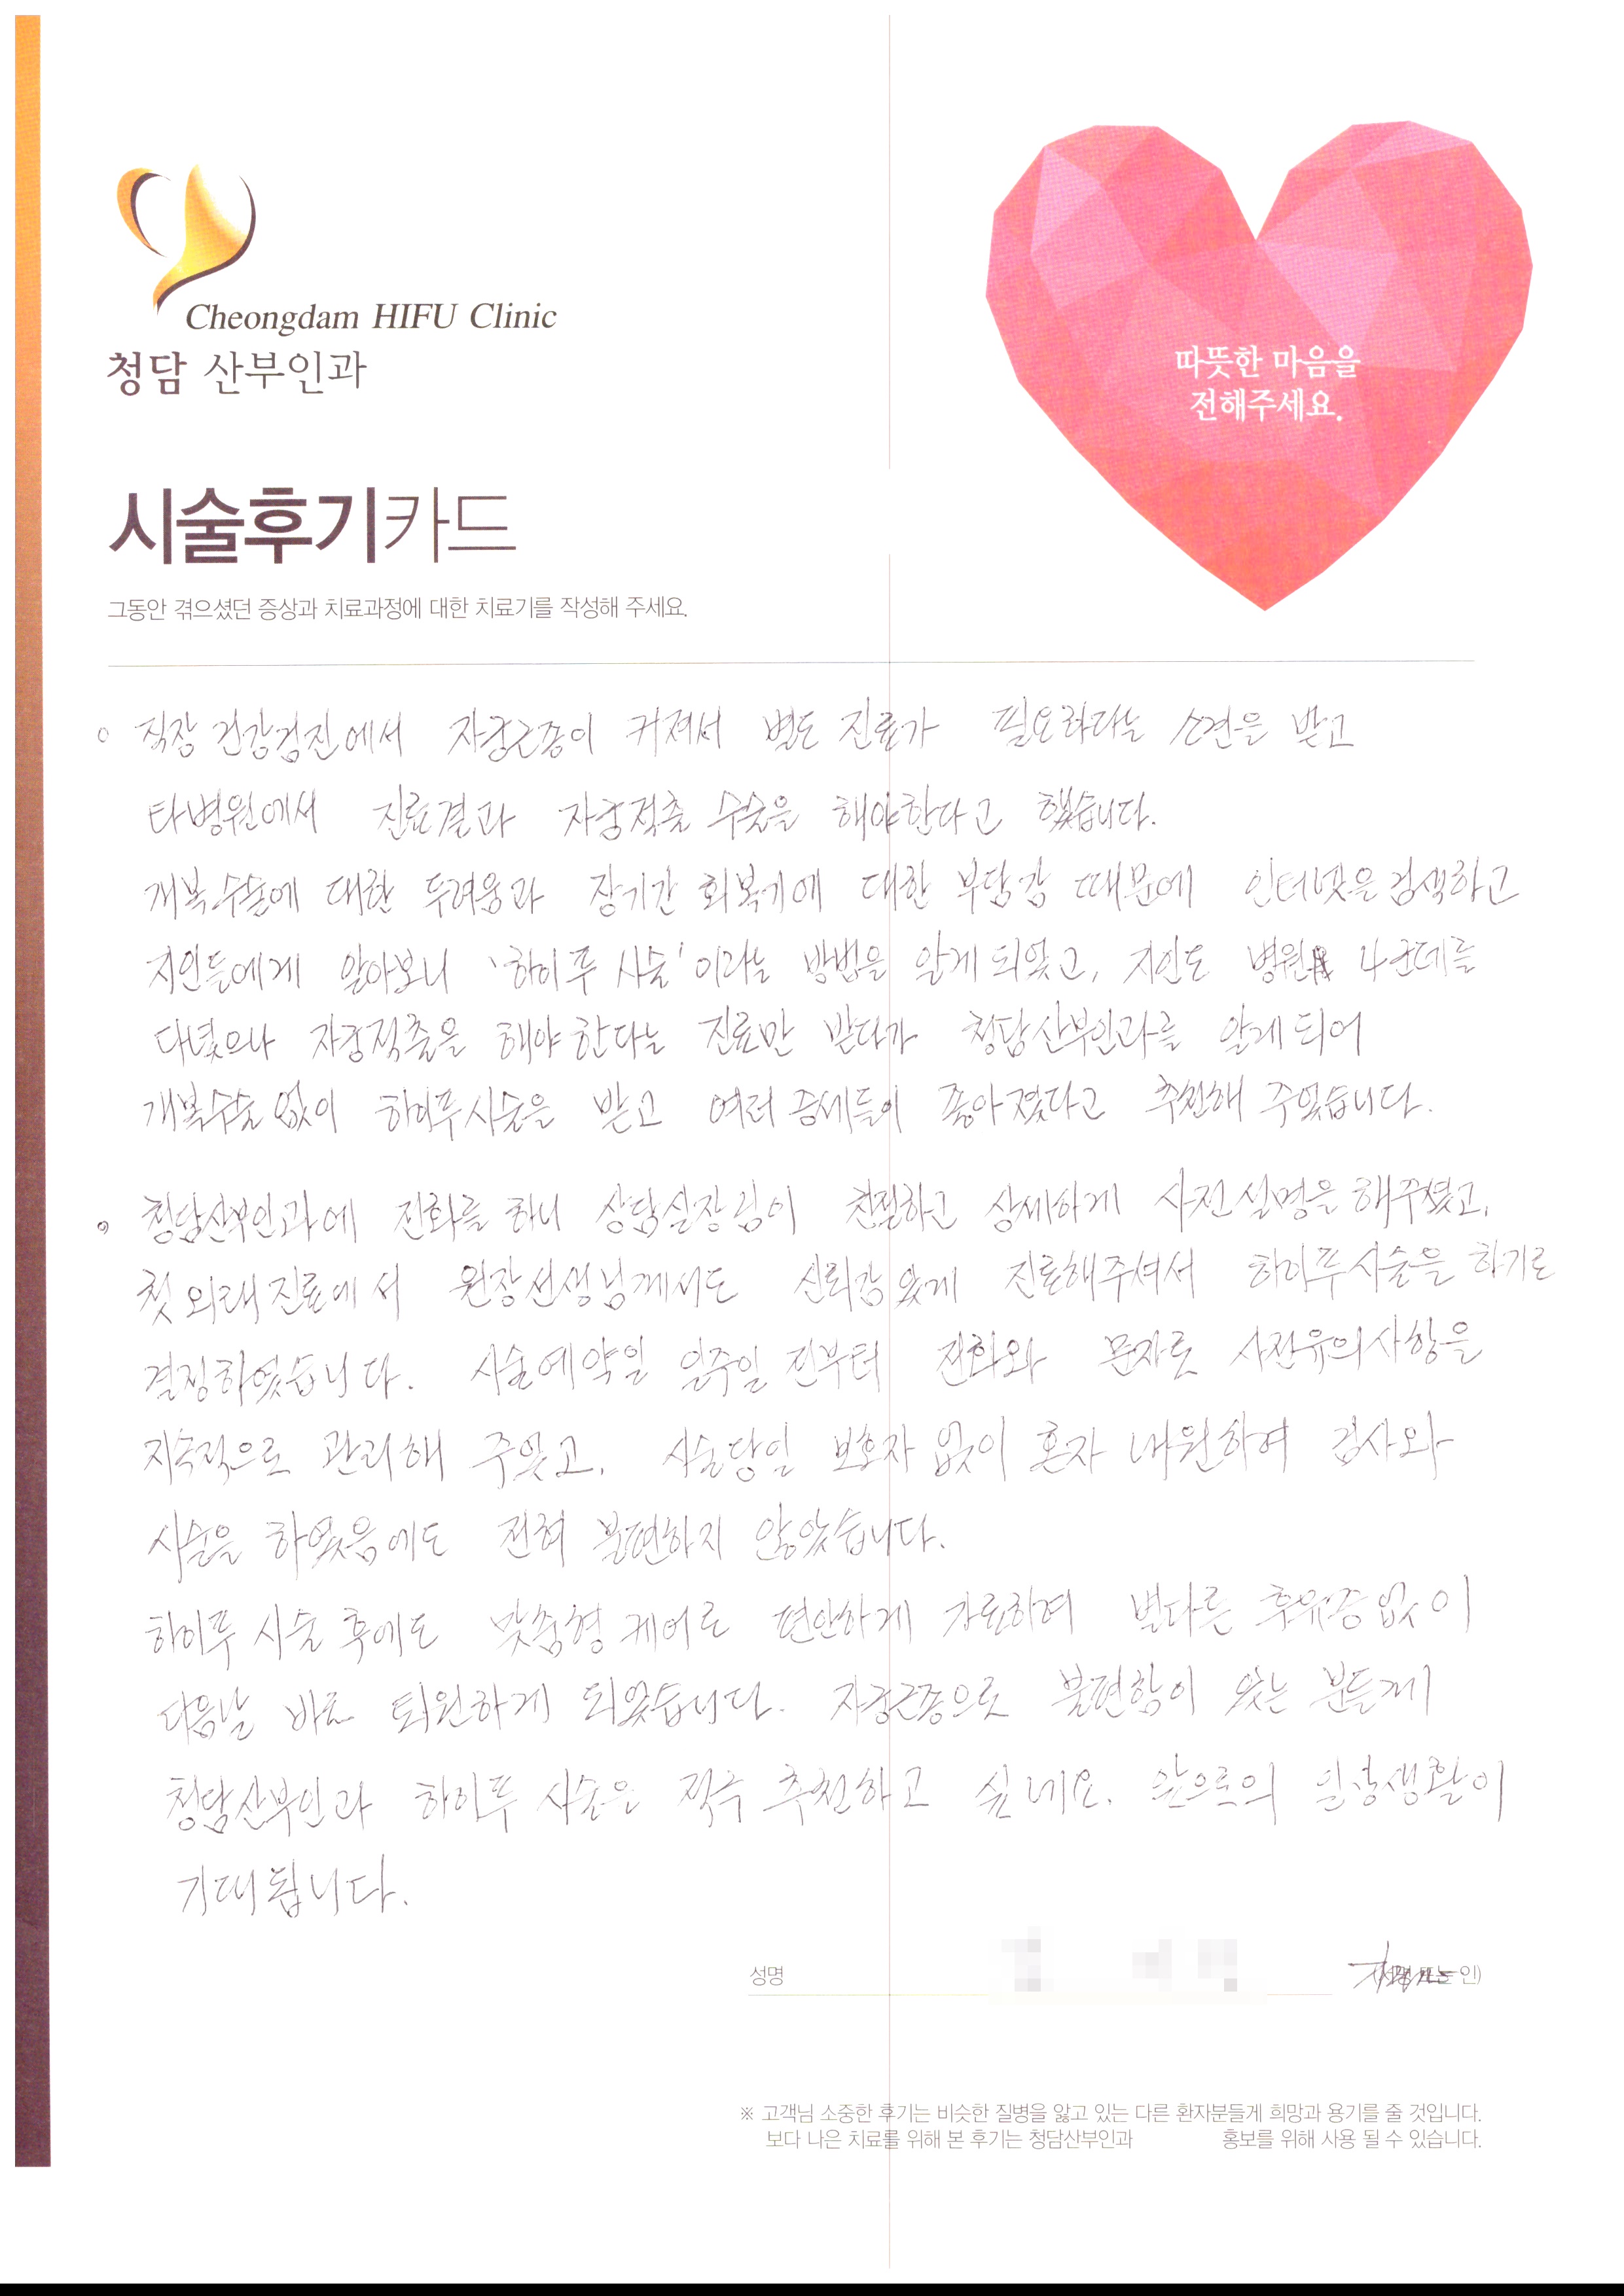 Cheongdam HIFU Clinic
청담 산부인과
따뜻한 마음을
전해주세요.
시술후기카드
그동안 겪으셨던 증상과 치료과정에 대한 치료기를 작성해 주세요.
○ 직장 건강검진에서 자궁근종이 커져서 별도 진료가 필요하다는 소견을 받고
타병원에서 진료결과 자궁적출 수술을 해야한다고 했습니다.
개복수술에 대한 두려움과 장기간 회복기에 대한 부담감 때문에 인터넷을 검색하고
지인들에게 알아보니 '하이푸 시술'이라는 방법을 알게 되었고, 지인도 병원 4군데를
다녔으나 자궁적출을 해야 한다는 진료만 받다가 청담산부인과를 알게 되어
개복수술 없이 하이푸시술을 받고 여러 증세들이 좋아졌다고 추천해 주었습니다.
○ 청담산부인과에 전화를 하니 상담실장님이 친절하고 상세하게 사전설명을 해주셨고,
첫 외래진료에서 원장선생님께서도 신뢰감 있게 진료해주셔서 하이푸시술을 하기로
결정하였습니다. 시술예약일 일주일 전부터 전화와 문자로 사전유의사항을
지속적으로 관리해 주었고, 시술당일 보호자 없이 혼자 내원하여 검사와
시술을 하였음에도 전혀 불편하지 않았습니다.
하이푸 시술 후에도 맞춤형 케어로 편안하게 가료하며 별다른 후유증없이
다음날 바로 퇴원하게 되었습니다. 자궁근종으로 불편함이 있는 분들께
청담산부인과 하이푸 시술을 적극 추천하고 싶네요. 앞으로의 일상생활이
기대됩니다.
성명 인)
※ 고객님 소중한 후기는 비슷한 질병을 앓고 있는 다른 환자분들게 희망과 용기를 줄 것입니다.
보다 나은 치료를 위해 본 후기는 청담산부인과 홍보를 위해 사용 될 수 있습니다.